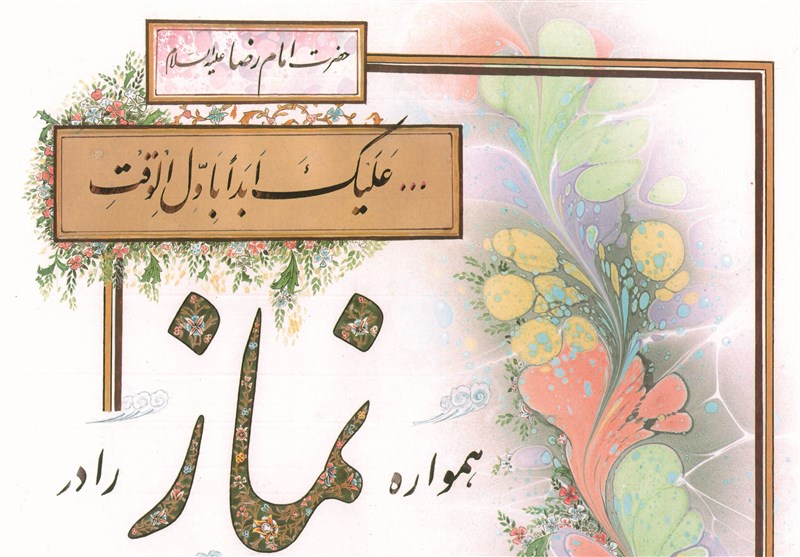 حضرت امام رضا علیه السلام
... عَلَیْکَ اَبَداً بِاَوَّلِ الْوَقْتِ
همواره نماز را در